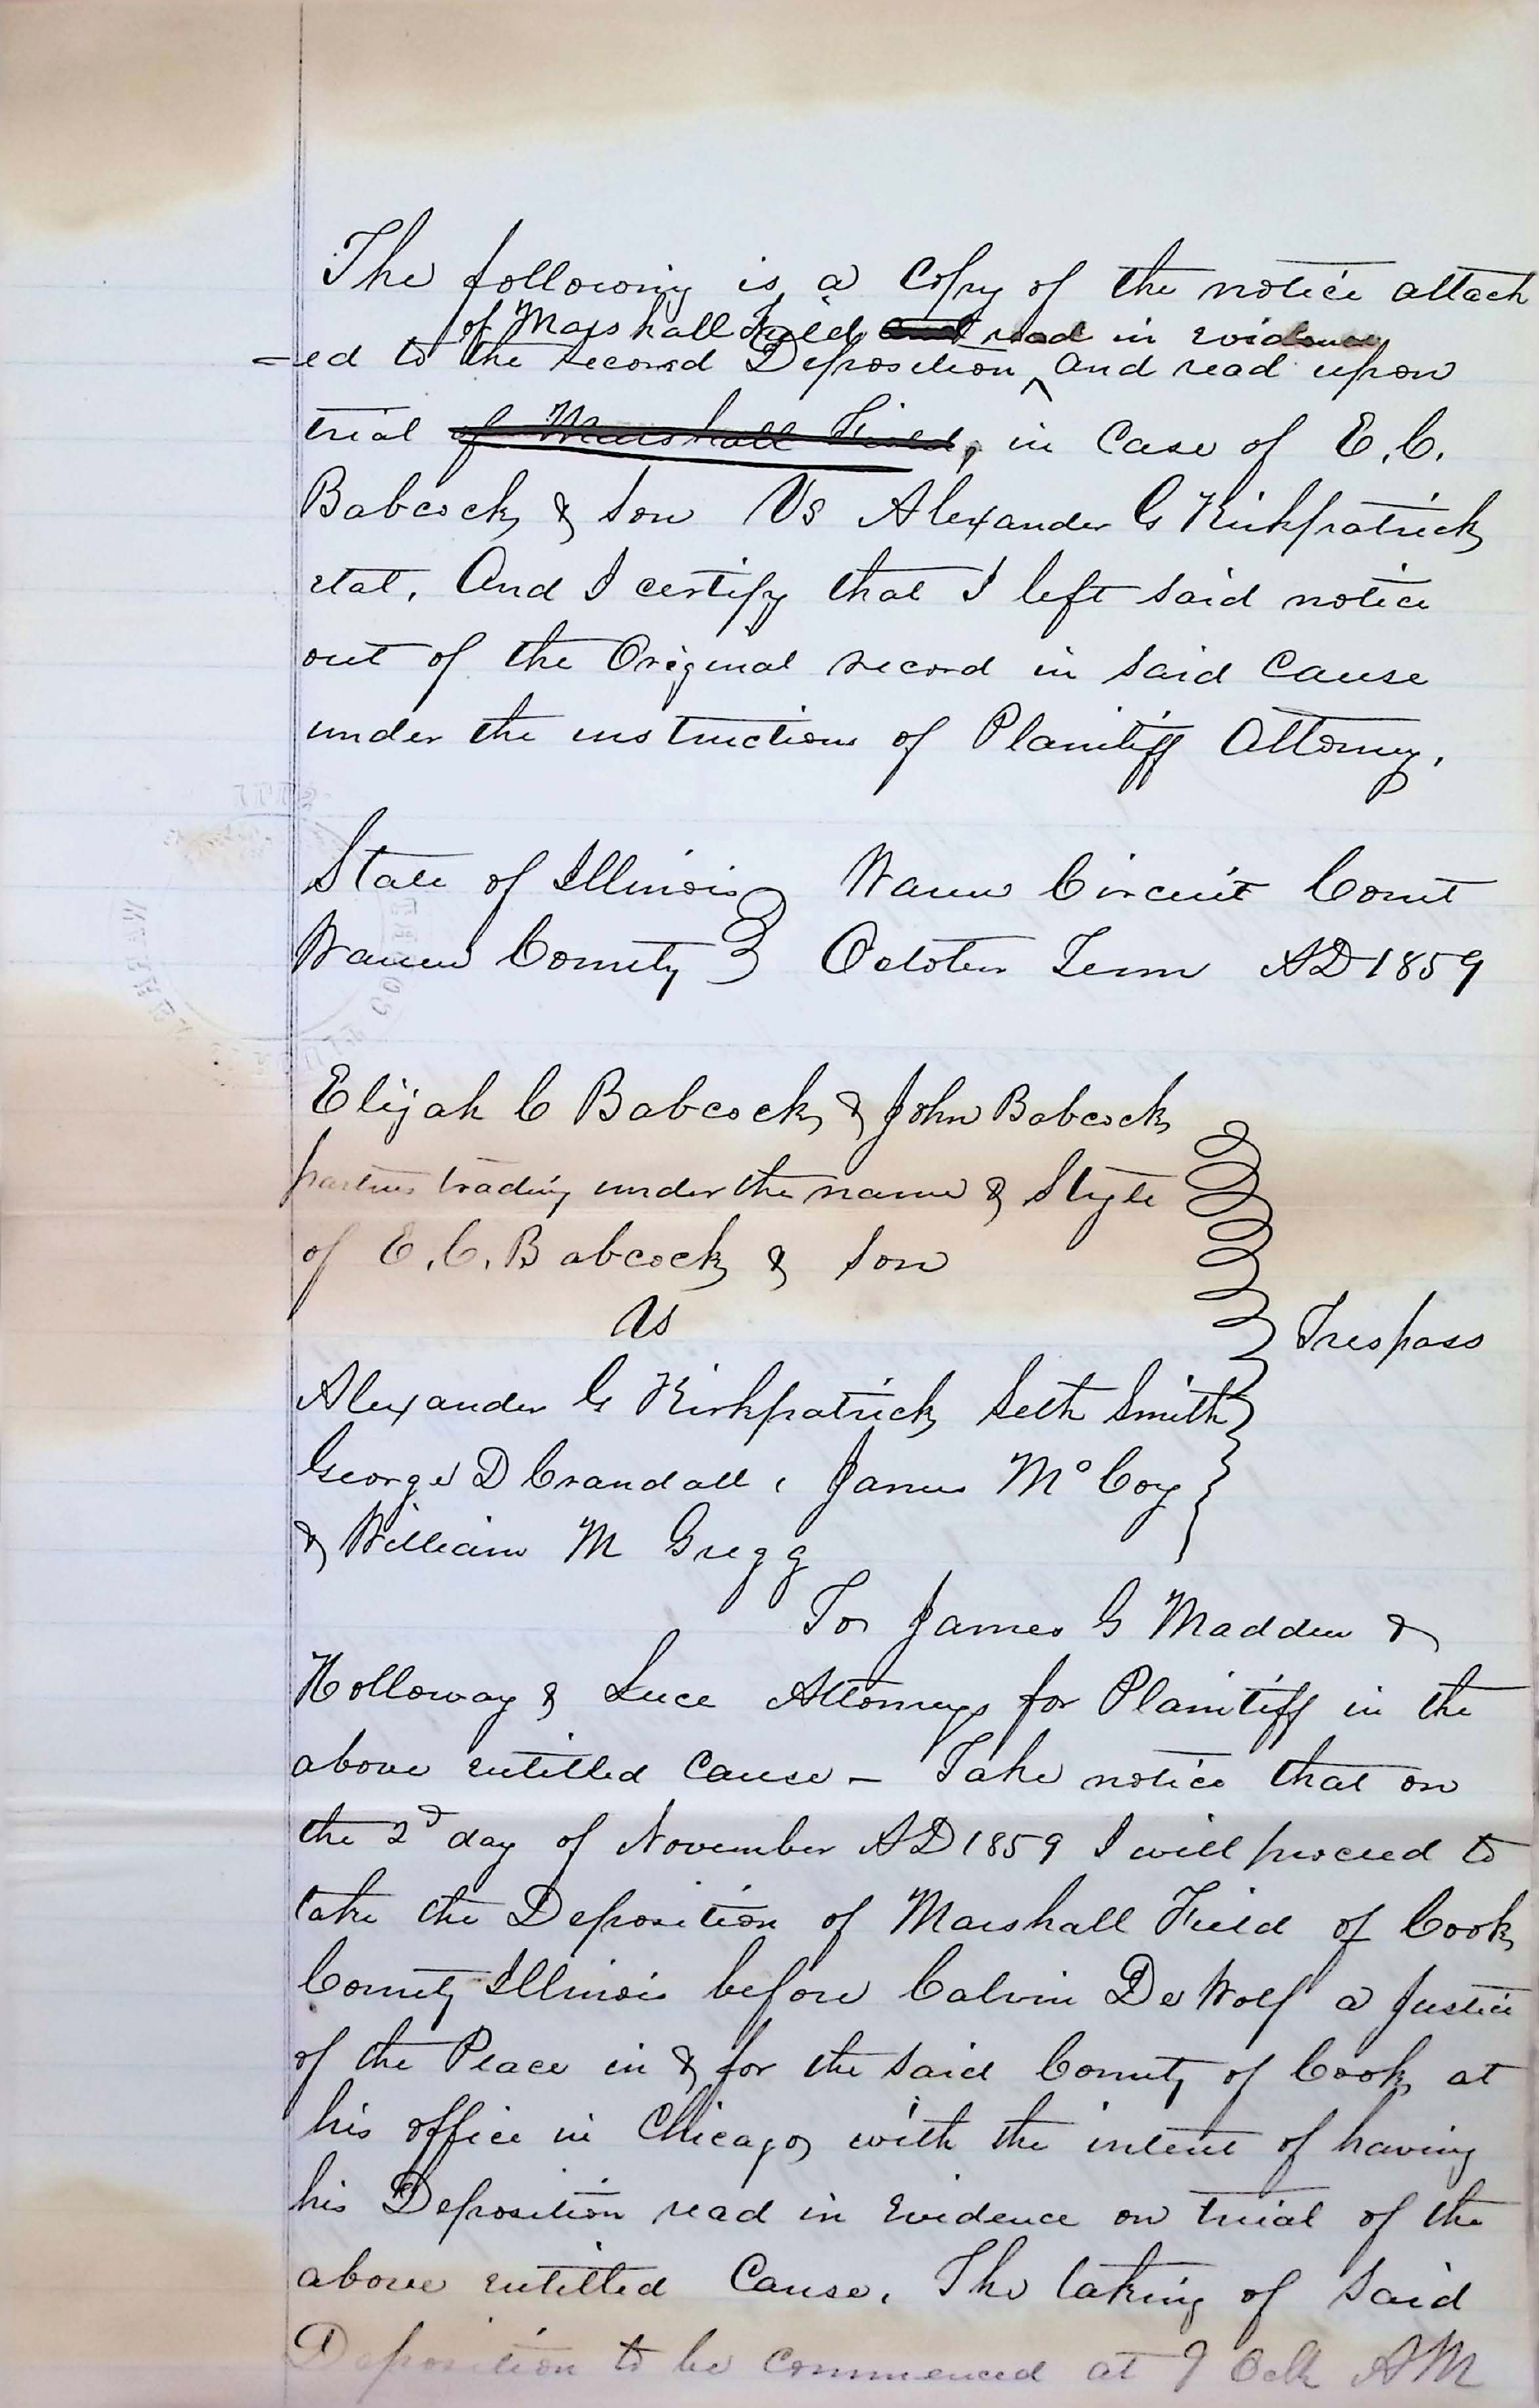 The following is a Copy of the notice attach
of Marshall Field and read in evidence
=ed to the second Deposition ^ and read upon
trial of Marshall Field, in Case of E. C.
Babcock & Son Vs Alexander G Kirkpatrick
etal. And I certify that I left said notice
out of the Original record in said Cause
under the instructions of Plaintiff Attorney.
State of Illinois } Warren Circuit Court
Warren County } October Term AD 1859
Elijah C Babcock & John Babcock
partners trading under the name & Style
of E. C. Babcock & Son
Vs
Trespass
Alexander G Kirkpatrick Seth Smith
George D Crandall, James McCoy
& William M Gregg
To James G Madden &
Holloway & Luce Attorneys for Plaintiff in the
above entitled Cause – Take notice that on
the 2d day of November AD 1859 I will proceed to
take the Deposition of Marshall Field of Cook
County Illinois before Calvin De Wolf a Justice
of the Peace in & for the said County of Cook at
his office in Chicago with the intent of having
his Deposition read in Evidence on trial of the
above entitled Cause. The taking of Said
Deposition to be Commenced at 9 Oclk AM